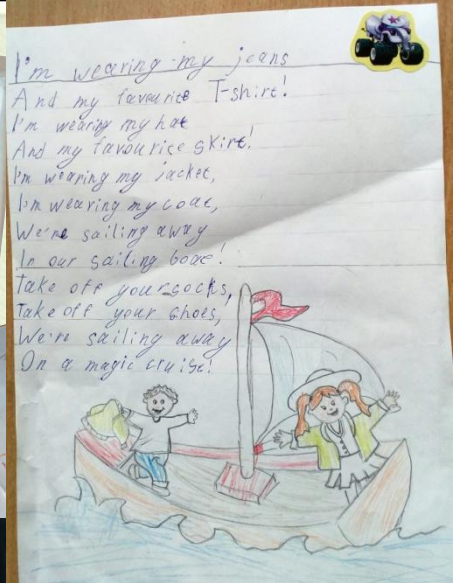 I'm wearing my jeans
And my favourite T-shirt!
I'm wearing my hat
And my favourite skirt!
I'm wearing my jacket,
I'm wearing my coat,
We're sailing away
In our sailing boat!
Take off your socks,
Take off your shoes,
We're sailing away
On a magic cruise!